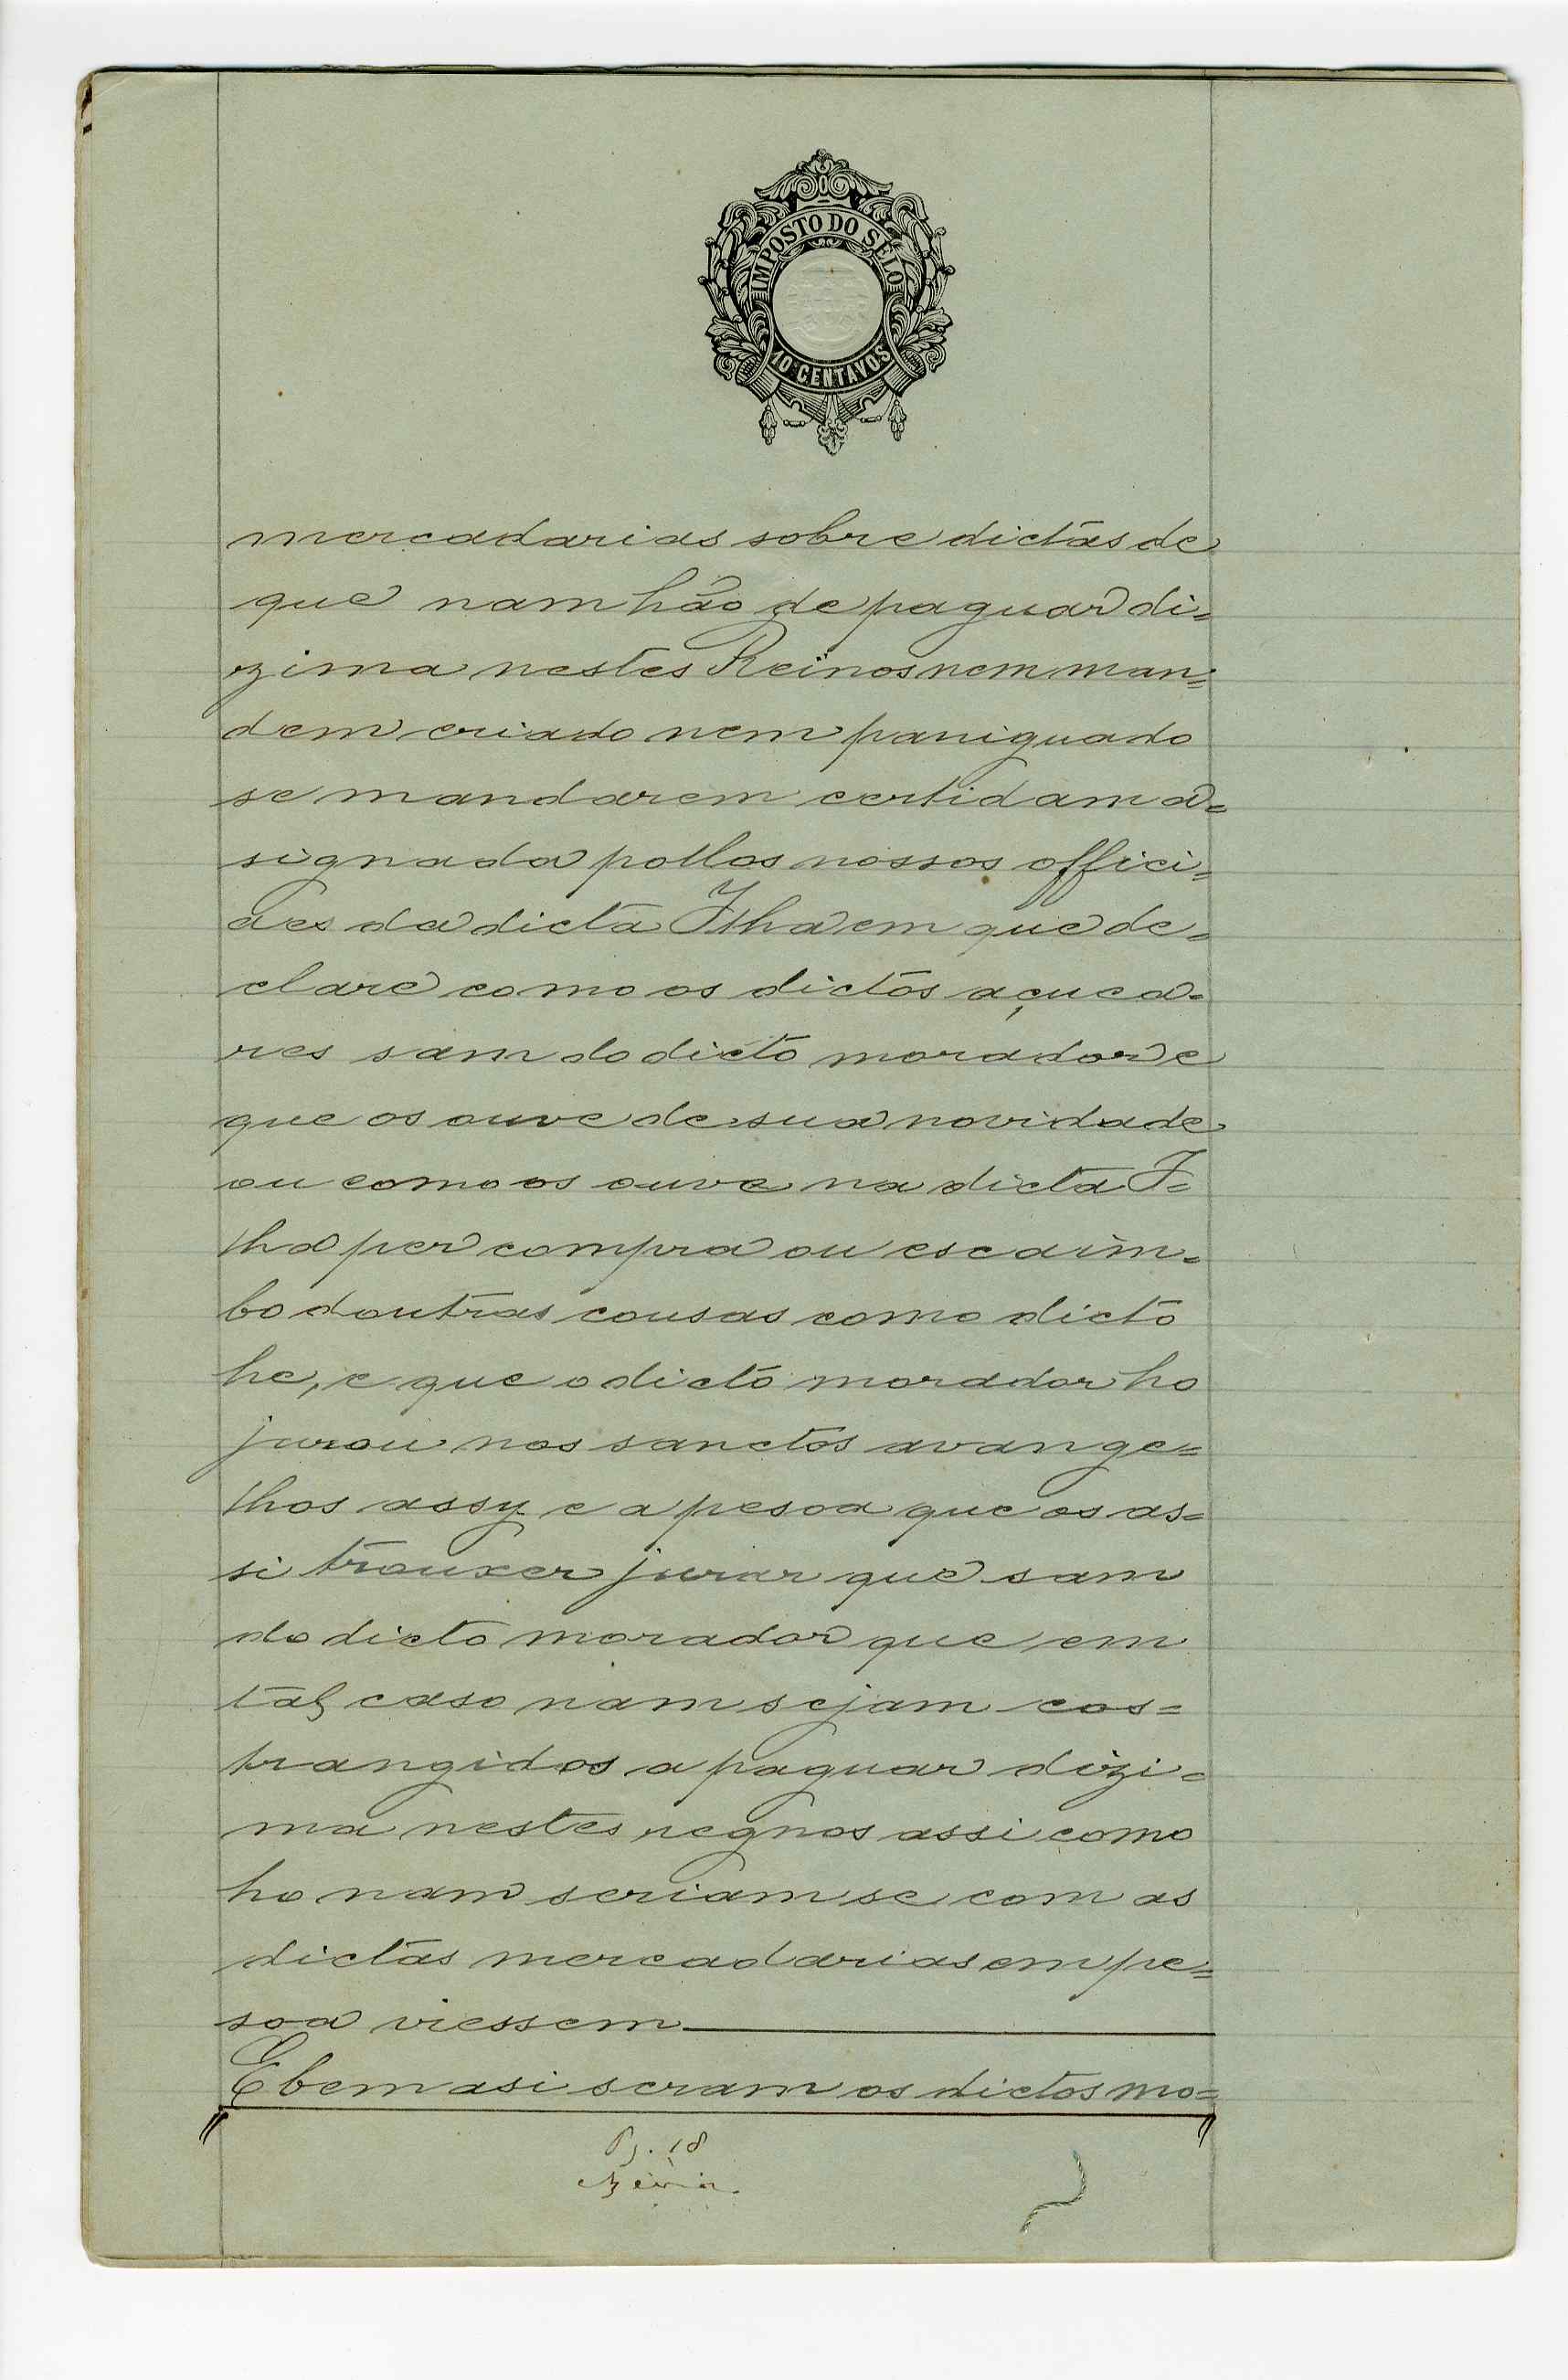 IMPOSTO DO SÊLO
10 CENTAVOS
mercadarias sobre dictas de
que nam hão de paguar di=
zima nestes Reinos nem man=
dem criado nem paniguado
se mandarem certidam a=
signada pollos nossos offici=
aes da dicta Ilha em que de=
clare como os dictos açuca=
res sam do dicto morador e
que os ouve de sua novidade
ou como os ouve na dicta I=
lha per compra ou escaim=
bo doutras cousas como dicto
he, e que o dicto morador ho
jurou nos sanctos avange=
lhos assy e a pesoa que os as=
si trouxer jurar que sam
do dicto morador que em
tal caso nam sejam cos=
trangidos a paguar dizi=
ma nestes regnos assi como
ho nam seriam se com as
dictas mercadarias em pe=
soa viessem
E bem asi seram os dictos mo=
Pg. 18